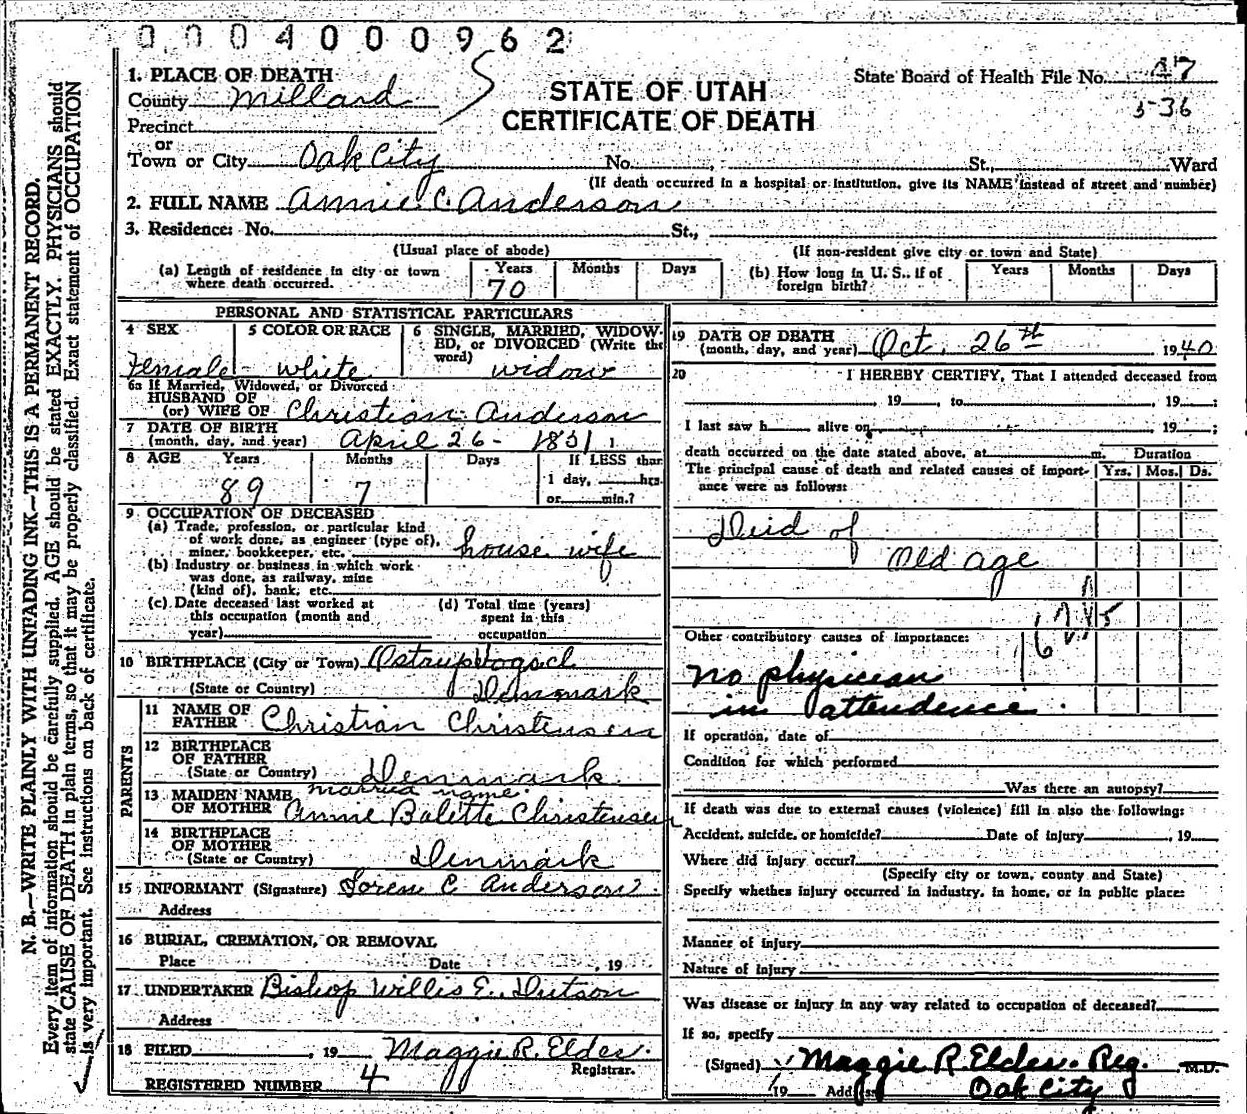 0 0 0 4 0 0 0 9 6 2
1. PLACE OF DEATH
County Millard
Precinct
or
Town or City Oak City No. , St., Ward
(If death occurred in a hospital or institution, give its NAME instead of street and number)
STATE OF UTAH
CERTIFICATE OF DEATH
State Board of Health File No. 47
5-36
2. FULL NAME Annie C. Anderson
3. Residence: No. St.,
(Usual place of abode) (If non-resident give city or town and State)
(a) Length of residence in city or town where death occurred. Years 70 Months Days
(b) How long in U. S., if of foreign birth? Years Months Days
PERSONAL AND STATISTICAL PARTICULARS
4 SEX Female
5 COLOR OR RACE white
6 SINGLE, MARRIED, WIDOWED, or DIVORCED (Write the word) widow
6a If Married, Widowed, or Divorced
HUSBAND OF
(or) WIFE OF Christian Anderson
7 DATE OF BIRTH
(month, day, and year) April 26 - 1851
8 AGE Years 89 Months 7 Days If LESS than
1 day, hrs.
or min.?
9 OCCUPATION OF DECEASED
(a) Trade, profession, or particular kind
of work done, as engineer (type of),
miner, bookkeeper, etc. house wife
(b) Industry or business in which work
was done, as railway, mine
(kind of), bank, etc.
(c) Date deceased last worked at
this occupation (month and
year)
(d) Total time (years)
spent in this
occupation
10 BIRTHPLACE (City or Town)
(State or Country) Denmark
PARENTS
11 NAME OF
FATHER Christian Christensen
12 BIRTHPLACE
OF FATHER
(State or Country) Denmark
13 MAIDEN NAME married name
OF MOTHER Annie Balette Christensen
14 BIRTHPLACE
OF MOTHER
(State or Country) Denmark
15 INFORMANT (Signature) Soren C Anderson
Address
16 BURIAL, CREMATION, OR REMOVAL
Place Date , 19
17 UNDERTAKER Bishop Willis E. Dutson
Address
18 FILED , 19 Maggie R. Elder.
Registrar.
REGISTERED NUMBER 4
19 DATE OF DEATH
(month, day, and year) Oct. 26th 1940
20 I HEREBY CERTIFY, That I attended deceased from
, 19 , to , 19 ;
I last saw h alive on , 19 ;
death occurred on the date stated above, at m. Duration
The principal cause of death and related causes of importance were as follows: Yrs. Mos. Ds.
Deid of
Old age
Other contributory causes of importance:
no physician
in attendence.
If operation, date of
Condition for which performed
Was there an autopsy?
If death was due to external causes (violence) fill in also the following:
Accident, suicide, or homicide? Date of injury , 19
Where did injury occur?
(Specify city or town, county and State)
Specify whether injury occurred in industry, in home, or in public place:
Manner of injury
Nature of injury
Was disease or injury in any way related to occupation of deceased?
If so, specify
(Signed) Maggie R. Elder. Reg. M.D.
19 Address Oak City
N. B.—WRITE PLAINLY WITH UNFADING INK—THIS IS A PERMANENT RECORD.
Every item of information should be carefully supplied. AGE should be stated EXACTLY. PHYSICIANS should
state CAUSE OF DEATH in plain terms, so that it may be properly classified. Exact statement of OCCUPATION
is very important. See instructions on back of certificate.